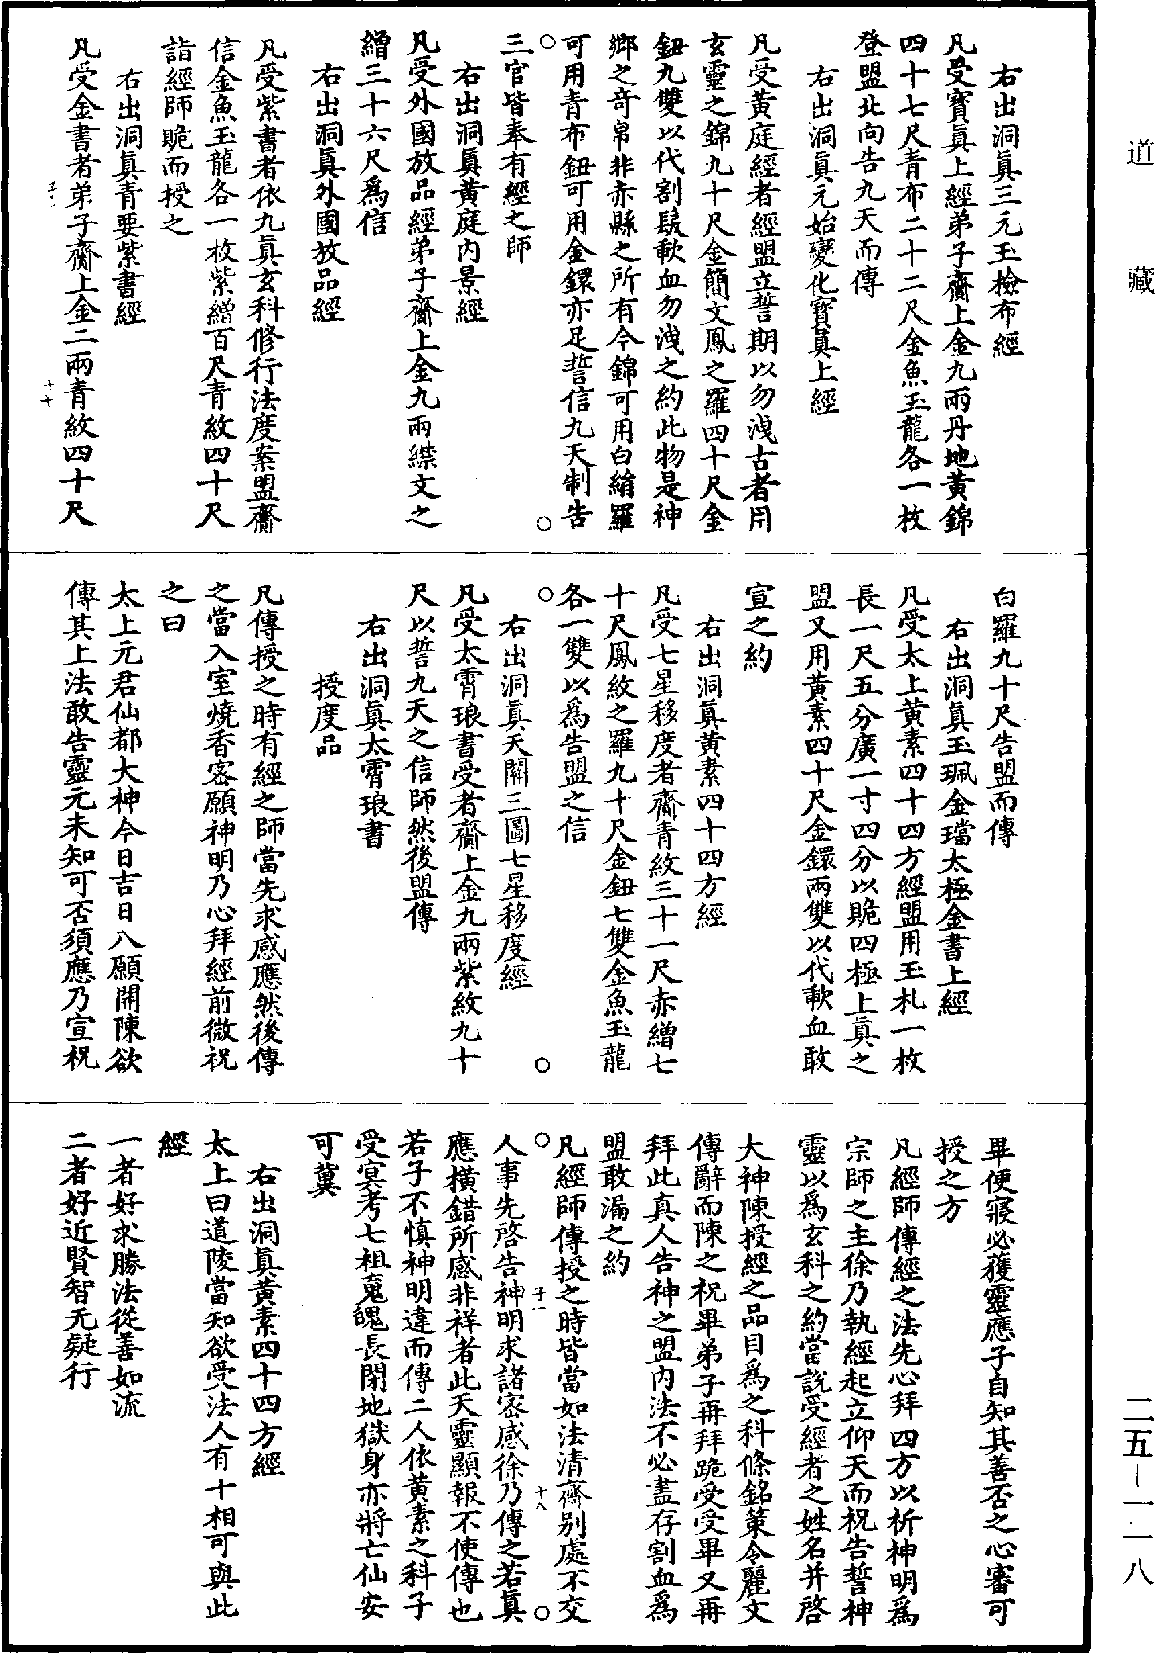 道藏
右出洞眞三元玉檢布經
凡受寶眞上經弟子齎上金九兩丹地黃錦
四十七尺青布二十二尺金魚玉龍各一枚
登盟北向告九天而傳
右出洞眞元始變化寶眞上經
凡受黃庭經者經盟立誓期以勿洩古者用
玄靈之錦九十尺金簡文鳳之羅四十尺金
鈕九雙以代割髮歃血勿洩之約此物是神
鄉之奇帛非赤縣之所有今錦可用白絹羅
可用青布鈕可用金鐶亦足誓信九天制告
三官皆奉有經之師
右出洞眞黃庭內景經
凡受外國放品經弟子齎上金九兩緤文之
繒三十六尺爲信
右出洞眞外國放品經
凡受紫書者依九眞玄科修行法度案盟齎
信金魚玉龍各一枚紫繒百尺青紋四十尺
詣經師跪而授之
右出洞眞青要紫書經
凡受金書者弟子齎上金二兩青紋四十尺
十七
白羅九十尺告盟而傳
右出洞眞玉珮金璫太極金書上經
凡受太上黃素四十四方經盟用玉札一枚
長一尺五分廣一寸四分以跪四極上眞之
盟又用黃素四十尺金鐶兩雙以代歃血敢
宣之約
右出洞眞黃素四十四方經
凡受七星移度者齎青紋三十一尺赤繒七
十尺鳳紋之羅九十尺金鈕七雙金魚玉龍
各一雙以爲告盟之信
右出洞眞天關三圖七星移度經
凡受太霄琅書受者齎上金九兩紫紋九十
尺以誓九天之信師然後盟傳
右出洞眞太霄琅書
授度品
凡傳授之時有經之師當先求感應然後傳
之當入室燒香密願神明乃心拜經前微祝
之曰
太上元君仙都大神今日吉日八願開陳欲
傳其上法敢告靈元未知可否須應乃宣祝
畢便寢必獲靈應子自知其善否之心審可
授之方
凡經師傳經之法先心拜四方以祈神明爲
宗師之主徐乃執經起立仰天而祝告誓神
靈以爲玄科之約當說受經者之姓名并啓
大神陳授經之品目爲之科條銘策令麗文
傳辭而陳之祝畢弟子再拜跪受受畢又再
拜此真人告神之盟內法不必盡存割血爲
盟敢漏之約
凡經師傳授之時皆當如法清齋別處不交
子一
十八
人事先啓告神明求諸密感徐乃傳之若眞
應橫錯所感非祥者此天靈顯報不使傳也
若子不慎神明違而傳二人依黃素之科子
受冥考七祖魂魄長閉地獄身亦將亡仙安
可冀
右出洞眞黃素四十四方經
太上曰道陵當知欲受法人有十相可與此
經
一者好求勝法從善如流
二者好近賢智无疑行
二五－一一八